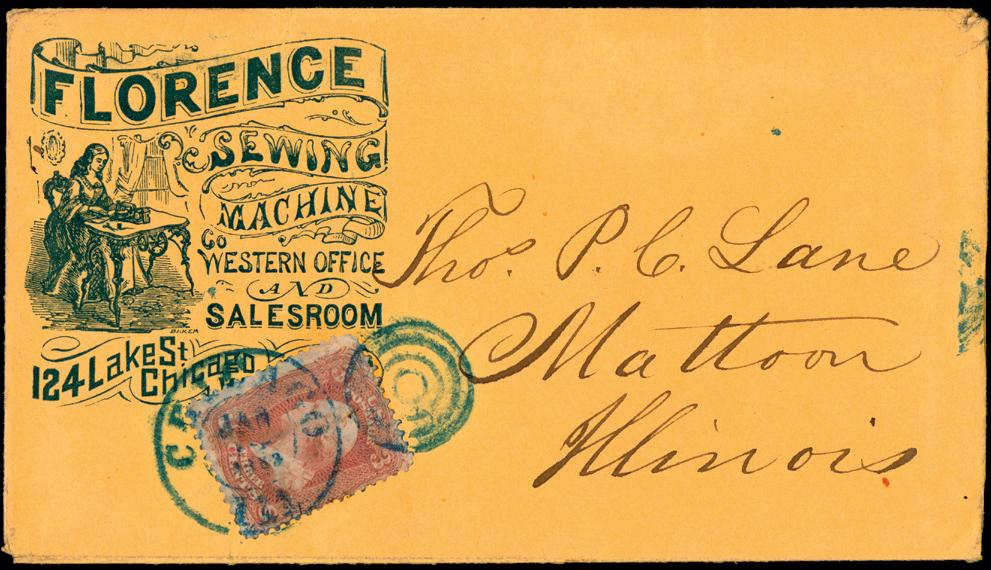 FLORENCE
SEWING
MACHINE
Co
WESTERN OFFICE
AND
SALESROOM
BAKER
124 Lake St
Chicago
Thos. P. C. Lane
Mattoon
Illinois
JAN
3